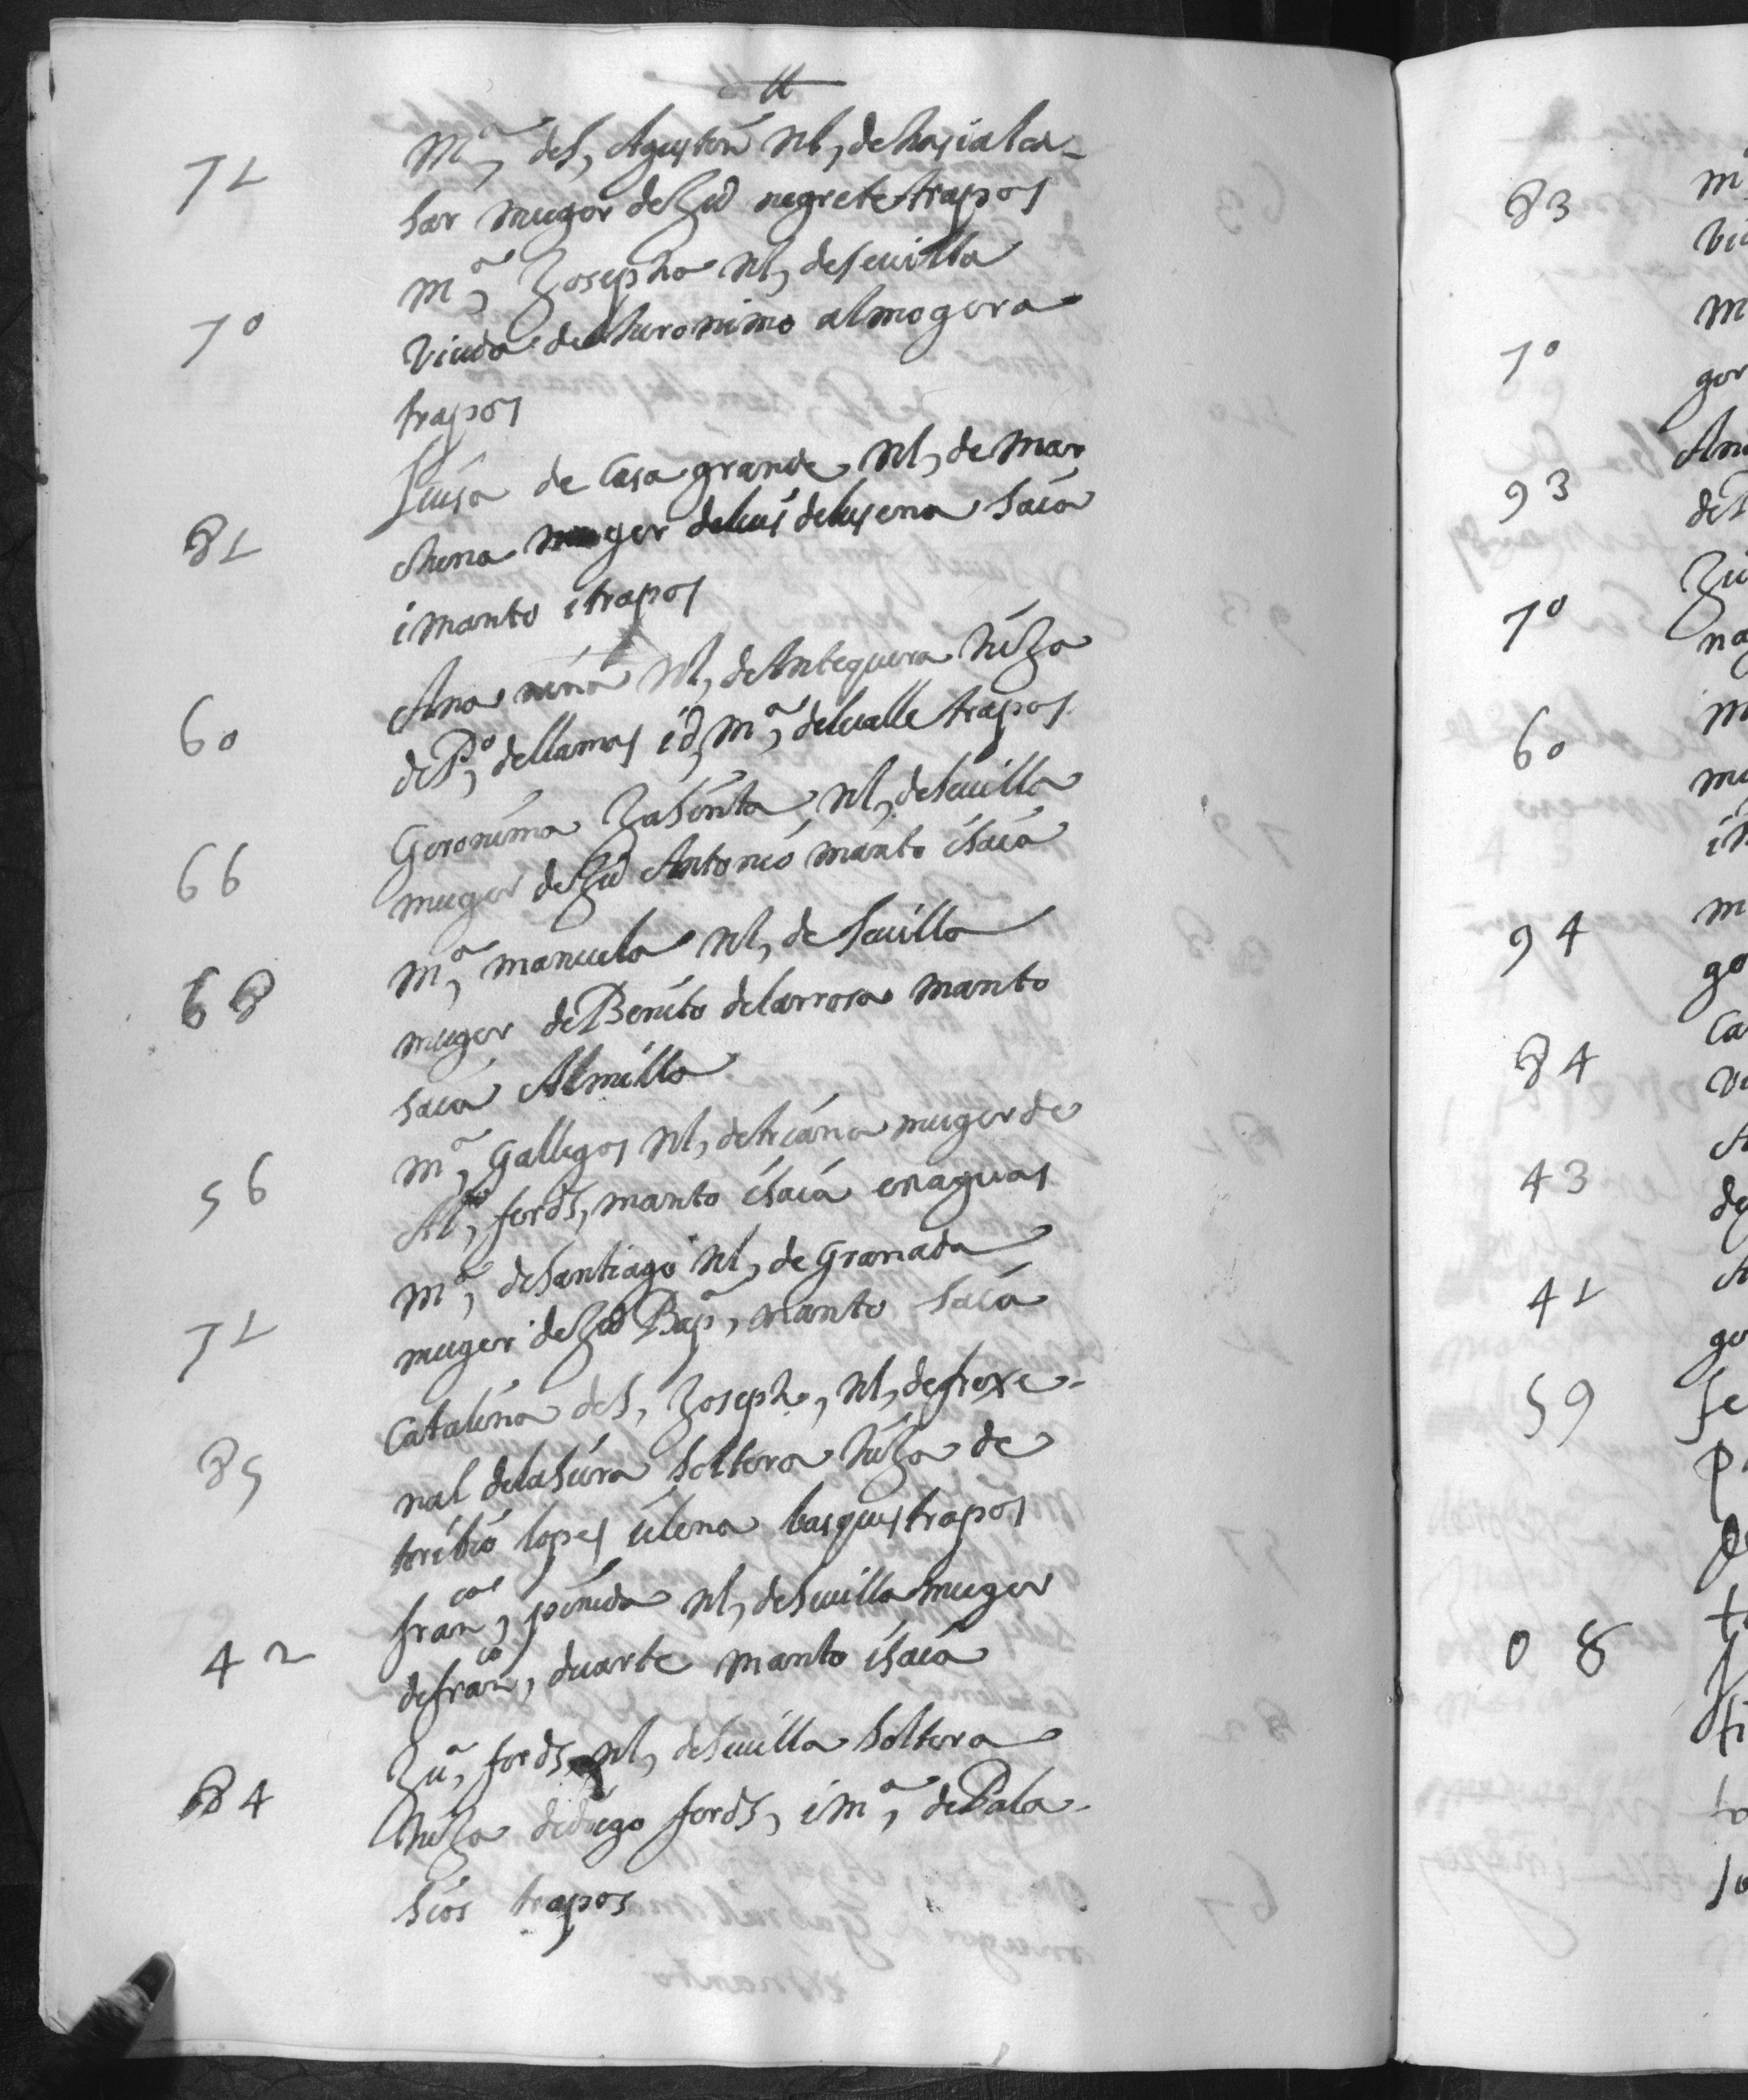 ll
71 Mª, de S, Agustin Nl, de hasialca-
sar muger de Juº negrete trapos
70 mª, Josepha Nl, de seuilla
viuda de heronimo almogera
trapos
81 Luisa de Casa grande Nl, de mar
chena muger de luis de lusena saia
i manto i trapos
60 Ana niña Nl, de Antequera hiJa
de Pº, de llamas i d, mª, del ualle trapos
66 Geronima Jasinta Nl, de seuilla
muger de Juº Antonio manto i saia
68 mª, manuela Nl, de seuilla
muger de Benito de larrosa manto
saia Almilla
56 mª, Gallegos Nl, de triana muger de
Alº, ferds, manto i saia enaguas
71 mª, de santiago Nl, de Granada
muger de Juº Bapª, manto saia
85 Catalina de S, Joseph, Nl, de frexe-
nal de la siera soltera hiJa de
toribio lopes i elena basques trapos
42 franca, pineda Nl, de seuilla muger
de franco, duarte manto i saia
84 Juª, ferds, Nl, de seuilla soltera
hiJa de diego ferds, i mª, de Pala-
sios trapos
83
70
93
70
60
94
84
43
41
59
08